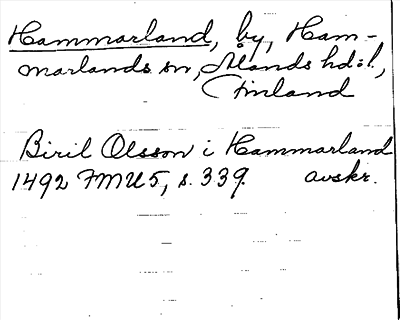 Hammarland, by, Ham-
marlands sn, Ålands hd:t.,
Finland
Biril Olsson i Hammarland
1492 FMU5, s. 339. avskr.